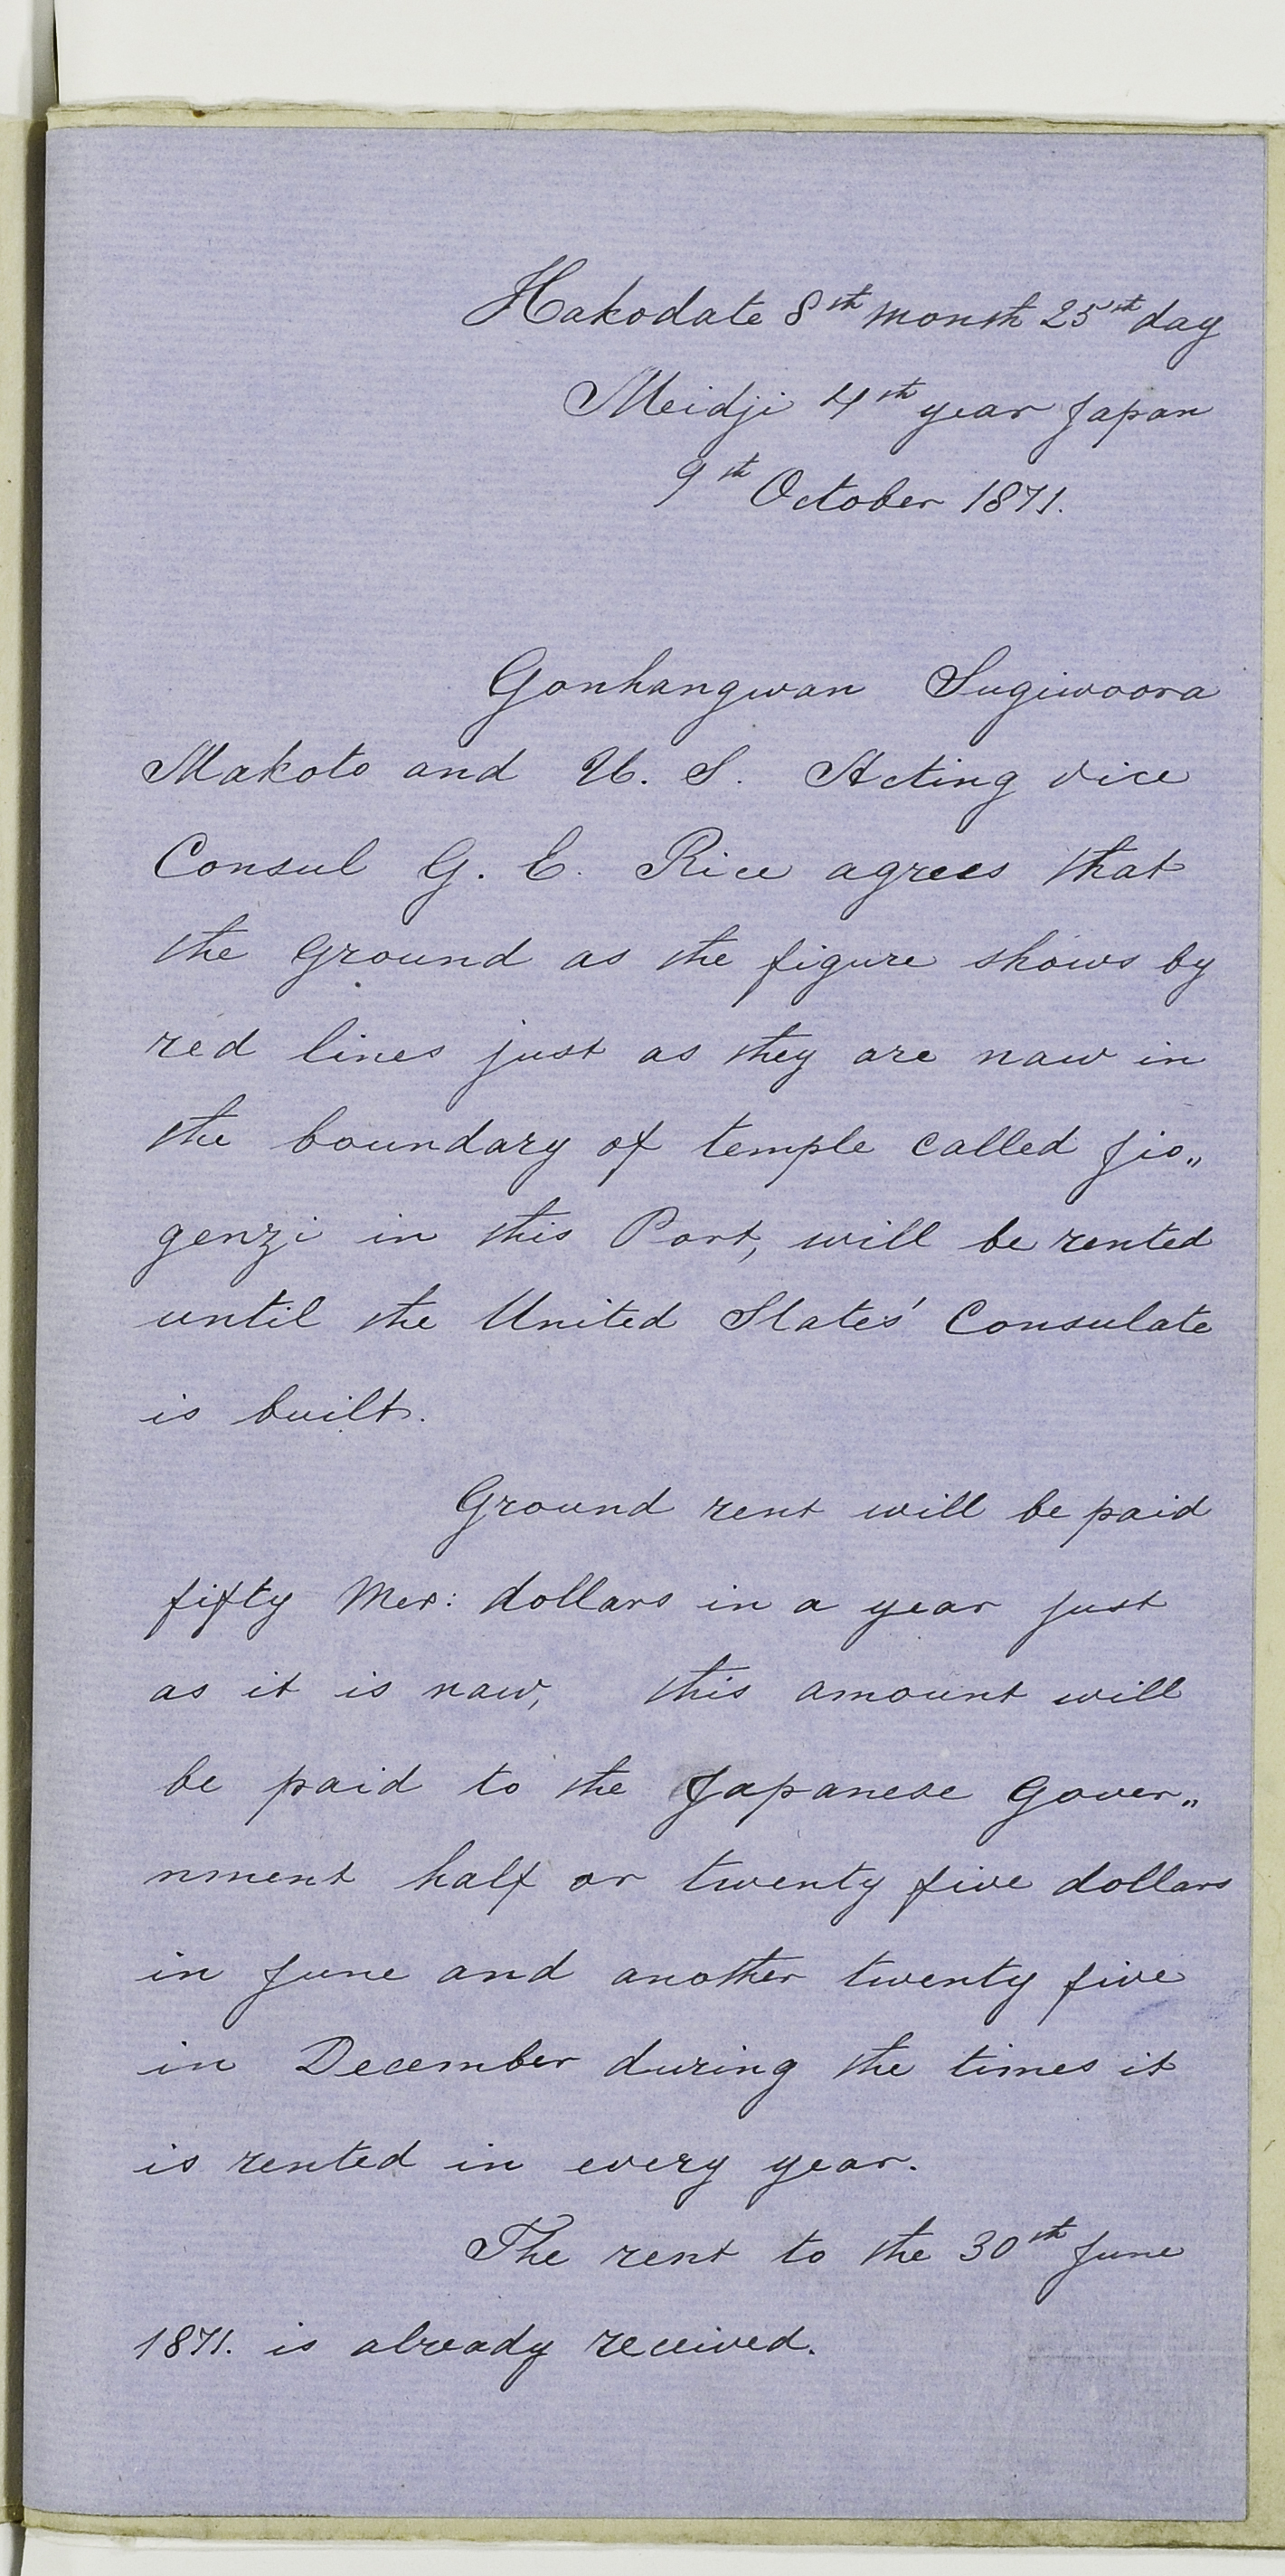 Hakodate 8th month 25th day
Meidji 4th year Japan
9th October 1871.
Gonhangwan Sugiwoora
Makoto and U. S. Acting vice
Consul G. E. Rice agrees that
the Ground as the figure shows by
red lines just as they are naw in
the boundary of temple called Jio„
genzi in this Port, will be rented
until the United States' Consulate
is built.
Ground rent will be paid
fifty Mex: dollars in a year just
as it is naw, this amount will
be paid to the Japanese Gover„
nment half or twenty five dollars
in June and another twenty five
in December during the times it
is rented in every year.
The rent to the 30th June
1871. is already received.